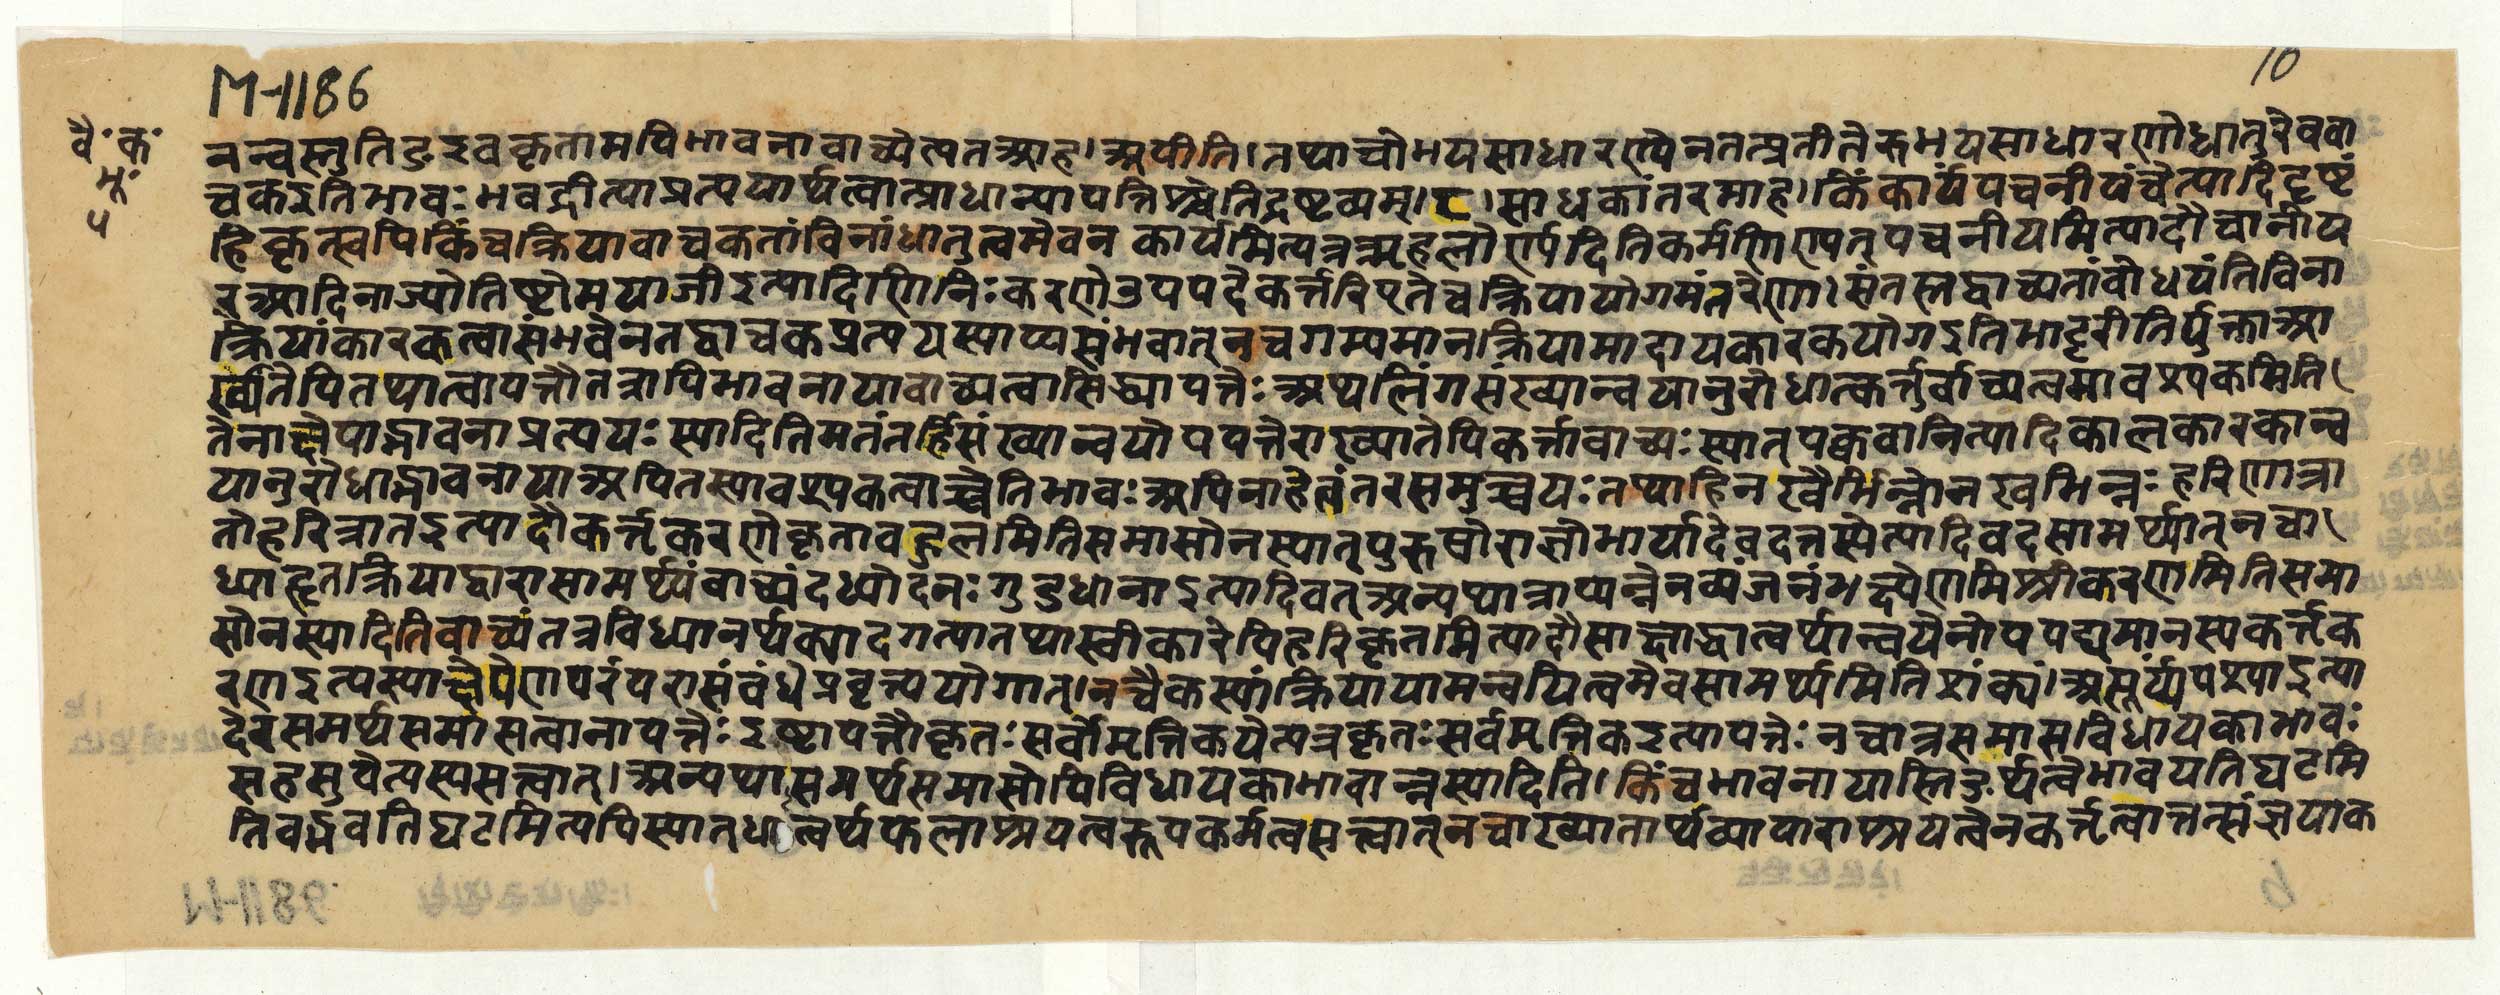 M-1186
10
वै. क.
भू.
५
नन्वस्तुतिङइवकृतामपिभावनावाच्येत्यतआह।अपीति।तथाचोभयसाधारण्येनतत्प्रतीतेरुभयसाधारणोधातुरेववा
चकइतिभावः भवद्रीत्याप्रत्ययार्थत्वात्प्राधान्यापत्तिश्चेतिद्रष्टव्यम्।८।साधकांतरमाह।किंकार्यंपचनीयंचेत्यादिदृष्टं
हिकृत्स्वपि किंचक्रियावाचकतांविनांधातुत्वमेवन कार्यमित्यत्रऋहलोर्ण्यदितिकर्मणिण्यत् पचनीयमित्यादौचानीय
र्आदिनाज्योतिष्टोमयाजीइत्यादिणिनिः करणेउपपदेकर्त्तरिएतेचक्रियायोगमंतरेण।संतस्तद्वाच्यतांबोधयंतिविना
क्रियांकारकत्वासंभवेनतद्वाचकप्रत्ययस्याप्यसंभवात् नचगम्यमानक्रियामादायकारकयोगइतिभाट्टरीतिर्युक्ताआ
ख्यातेपितथात्वापत्तौतत्रापिभावनायावाच्यत्वासिद्ध्यापत्तेः अथलिंगसंख्यान्वयानुरोधात्कर्त्तुर्वाच्यत्वमावश्यकमिति
तेनाक्षेपाद्भावनाप्रत्ययः स्यादितिमतंतर्हिसंख्यान्वयोपपत्तेराख्यातेपिकर्त्तावाच्यः स्यात् पक्ववानित्यादिकालकारकान्व
यानुरोधाद्भावनायाअपितस्यावश्यकत्वाच्चेतिभावः अपिनाहेत्वंतरसमुच्चयः तथाहिनखैर्भिन्नोनखभिन्नः हरिणात्रा
तोहरित्रातइत्यादौकर्त्तृकरणेकृताबहुलमितिसमासोनस्यात् पुरुषोराज्ञोभार्यादेवदत्तस्येत्यादिवदसामर्थ्यात् नचा
ध्याहृतक्रियाद्वारासामर्थ्यंवाच्यंदध्योदनः गुडधानाइत्यादिवत् अन्यथात्राप्यन्नेनव्यंजनंभक्ष्येणमिश्रीकरणमितिसमा
सोनस्यादितिवाच्यंतत्रविध्यानर्थक्यादगत्यातथास्वीकारेपिहरिकृतमित्यादौसाक्षाद्धात्वर्थान्वयेनोपपद्यमानस्यकर्त्तृक
रणइत्यस्याक्षेपेणपरंपरासंबंधेप्रवृत्त्ययोगात्।नचैकस्यांक्रियायामन्वयित्वमेवसामर्थ्यमितिशंक्यं।असूर्यंपश्याइत्या
देरसमर्थसमासत्वानापत्तेः इष्टापत्तौकृतः सर्वोमृत्तिकयेत्यत्रकृतः सर्वमृत्तिकइत्यापत्तेः नचात्रसमासविधायकाभावः
सहसुपेत्यस्यसत्त्वात्।अन्यथासमर्थसमासोपिविधायकाभावान्नस्यादिति।किंचभावनायास्तिङर्थत्वेभावयतिघटमि
तिवद्भवतिघटमित्यपिस्यात् धात्वर्थफलाश्रयत्वरूपकर्मत्वसत्त्वात् नचाख्यातार्थव्यापाराश्रयत्वेनकर्त्तृत्वात्तत्संज्ञयाक